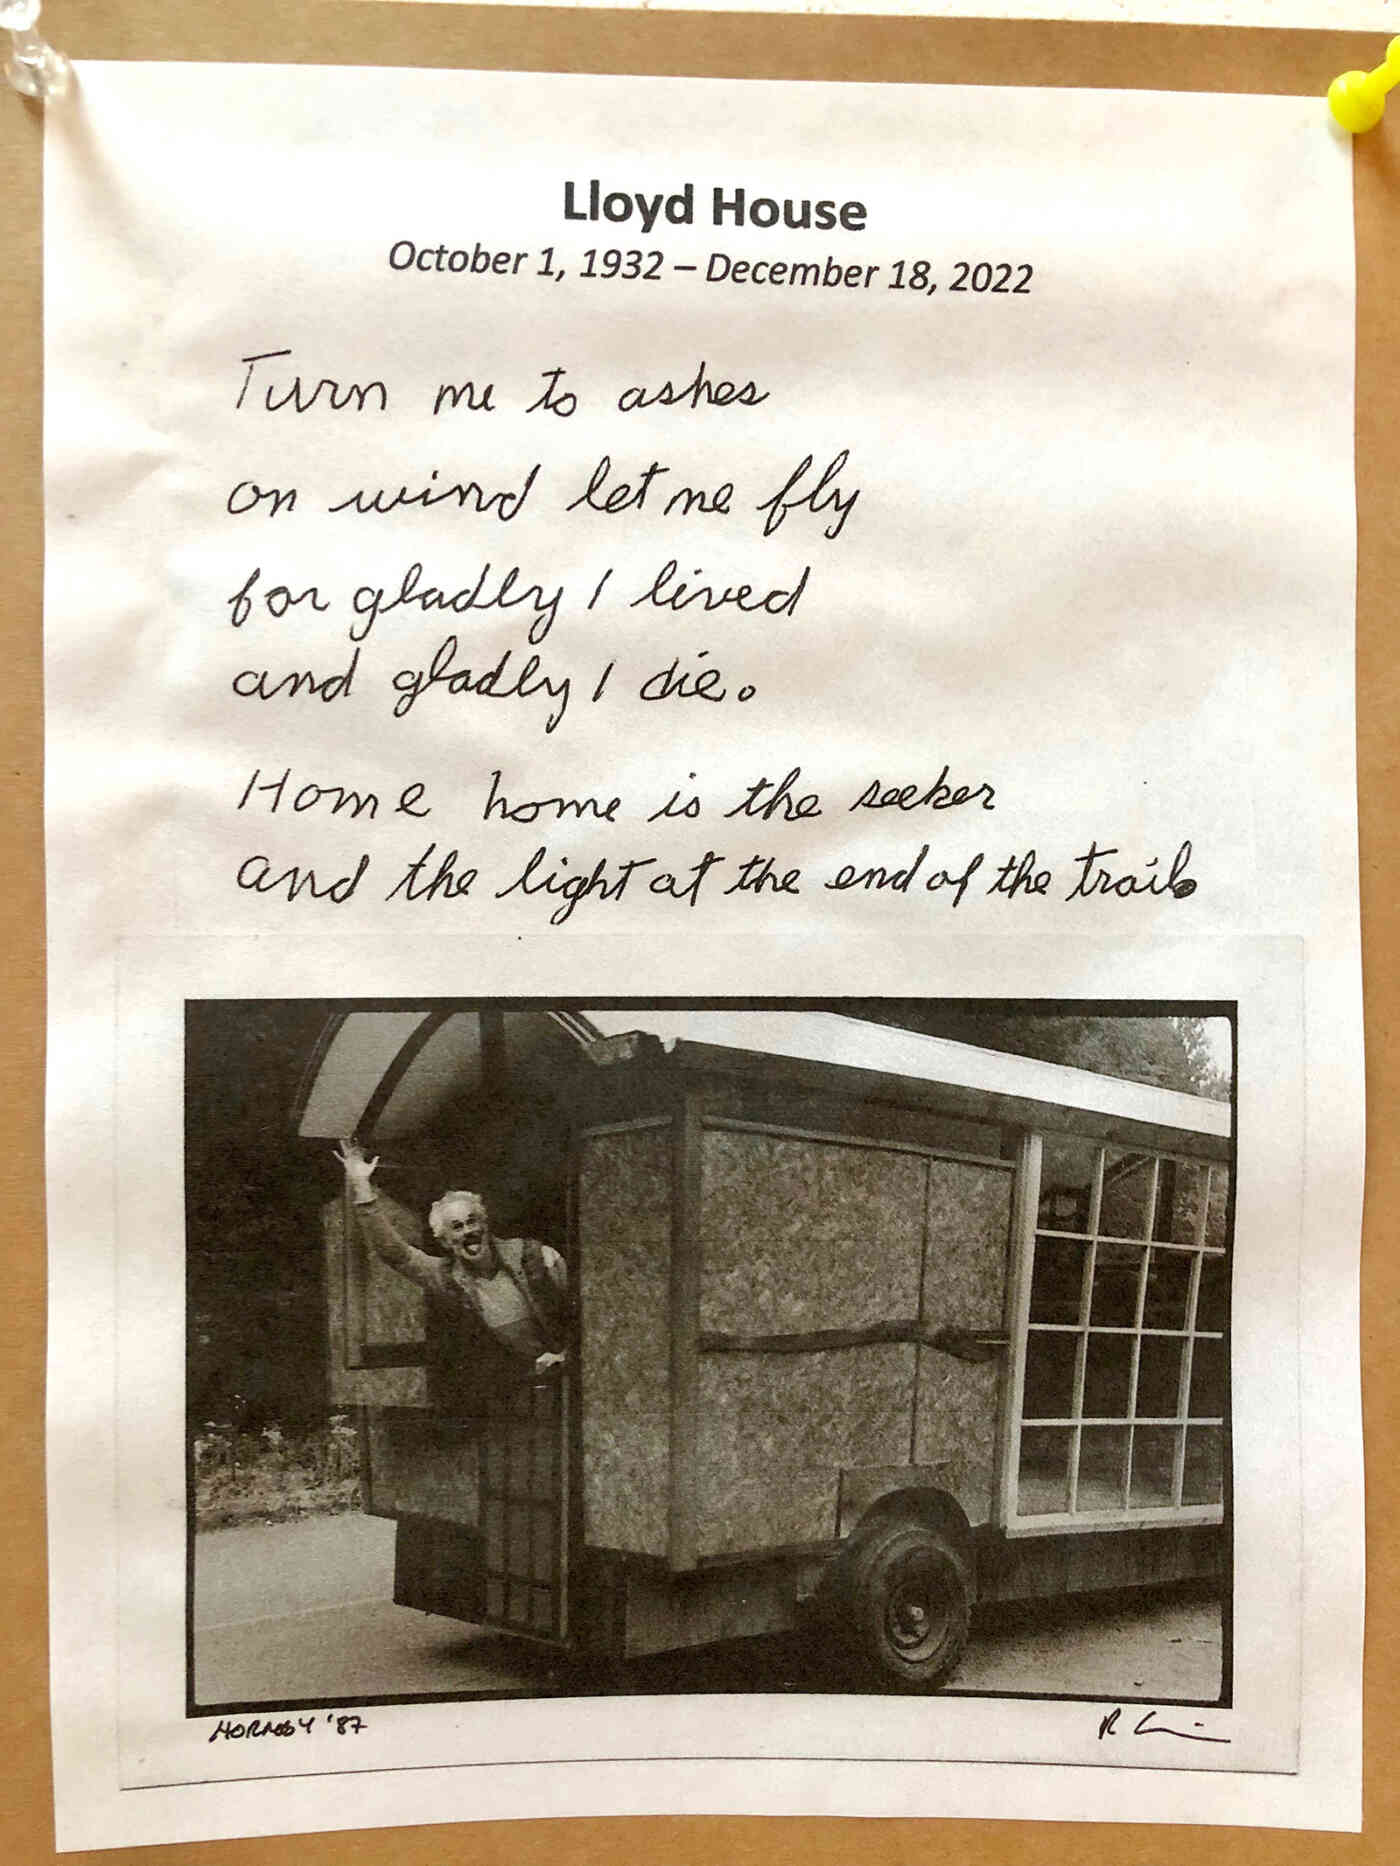 Lloyd House
October 1, 1932 – December 18, 2022
Turn me to ashes
on wind let me fly
for gladly I lived
and gladly I die.
Home home is the seeker
and the light at the end of the trail.
HORNBY '87
R